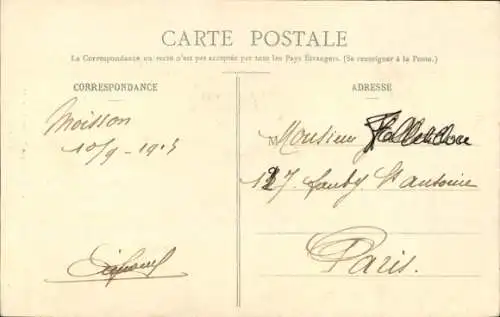 CARTE POSTALE
La Correspondance au recto n'est pas acceptée par tous les Pays Étrangers. (Se renseigner à la Poste.)
CORRESPONDANCE
ADRESSE
Moisson
10/9 - 1905
Monsieur
127 faubg St antoine
Paris.